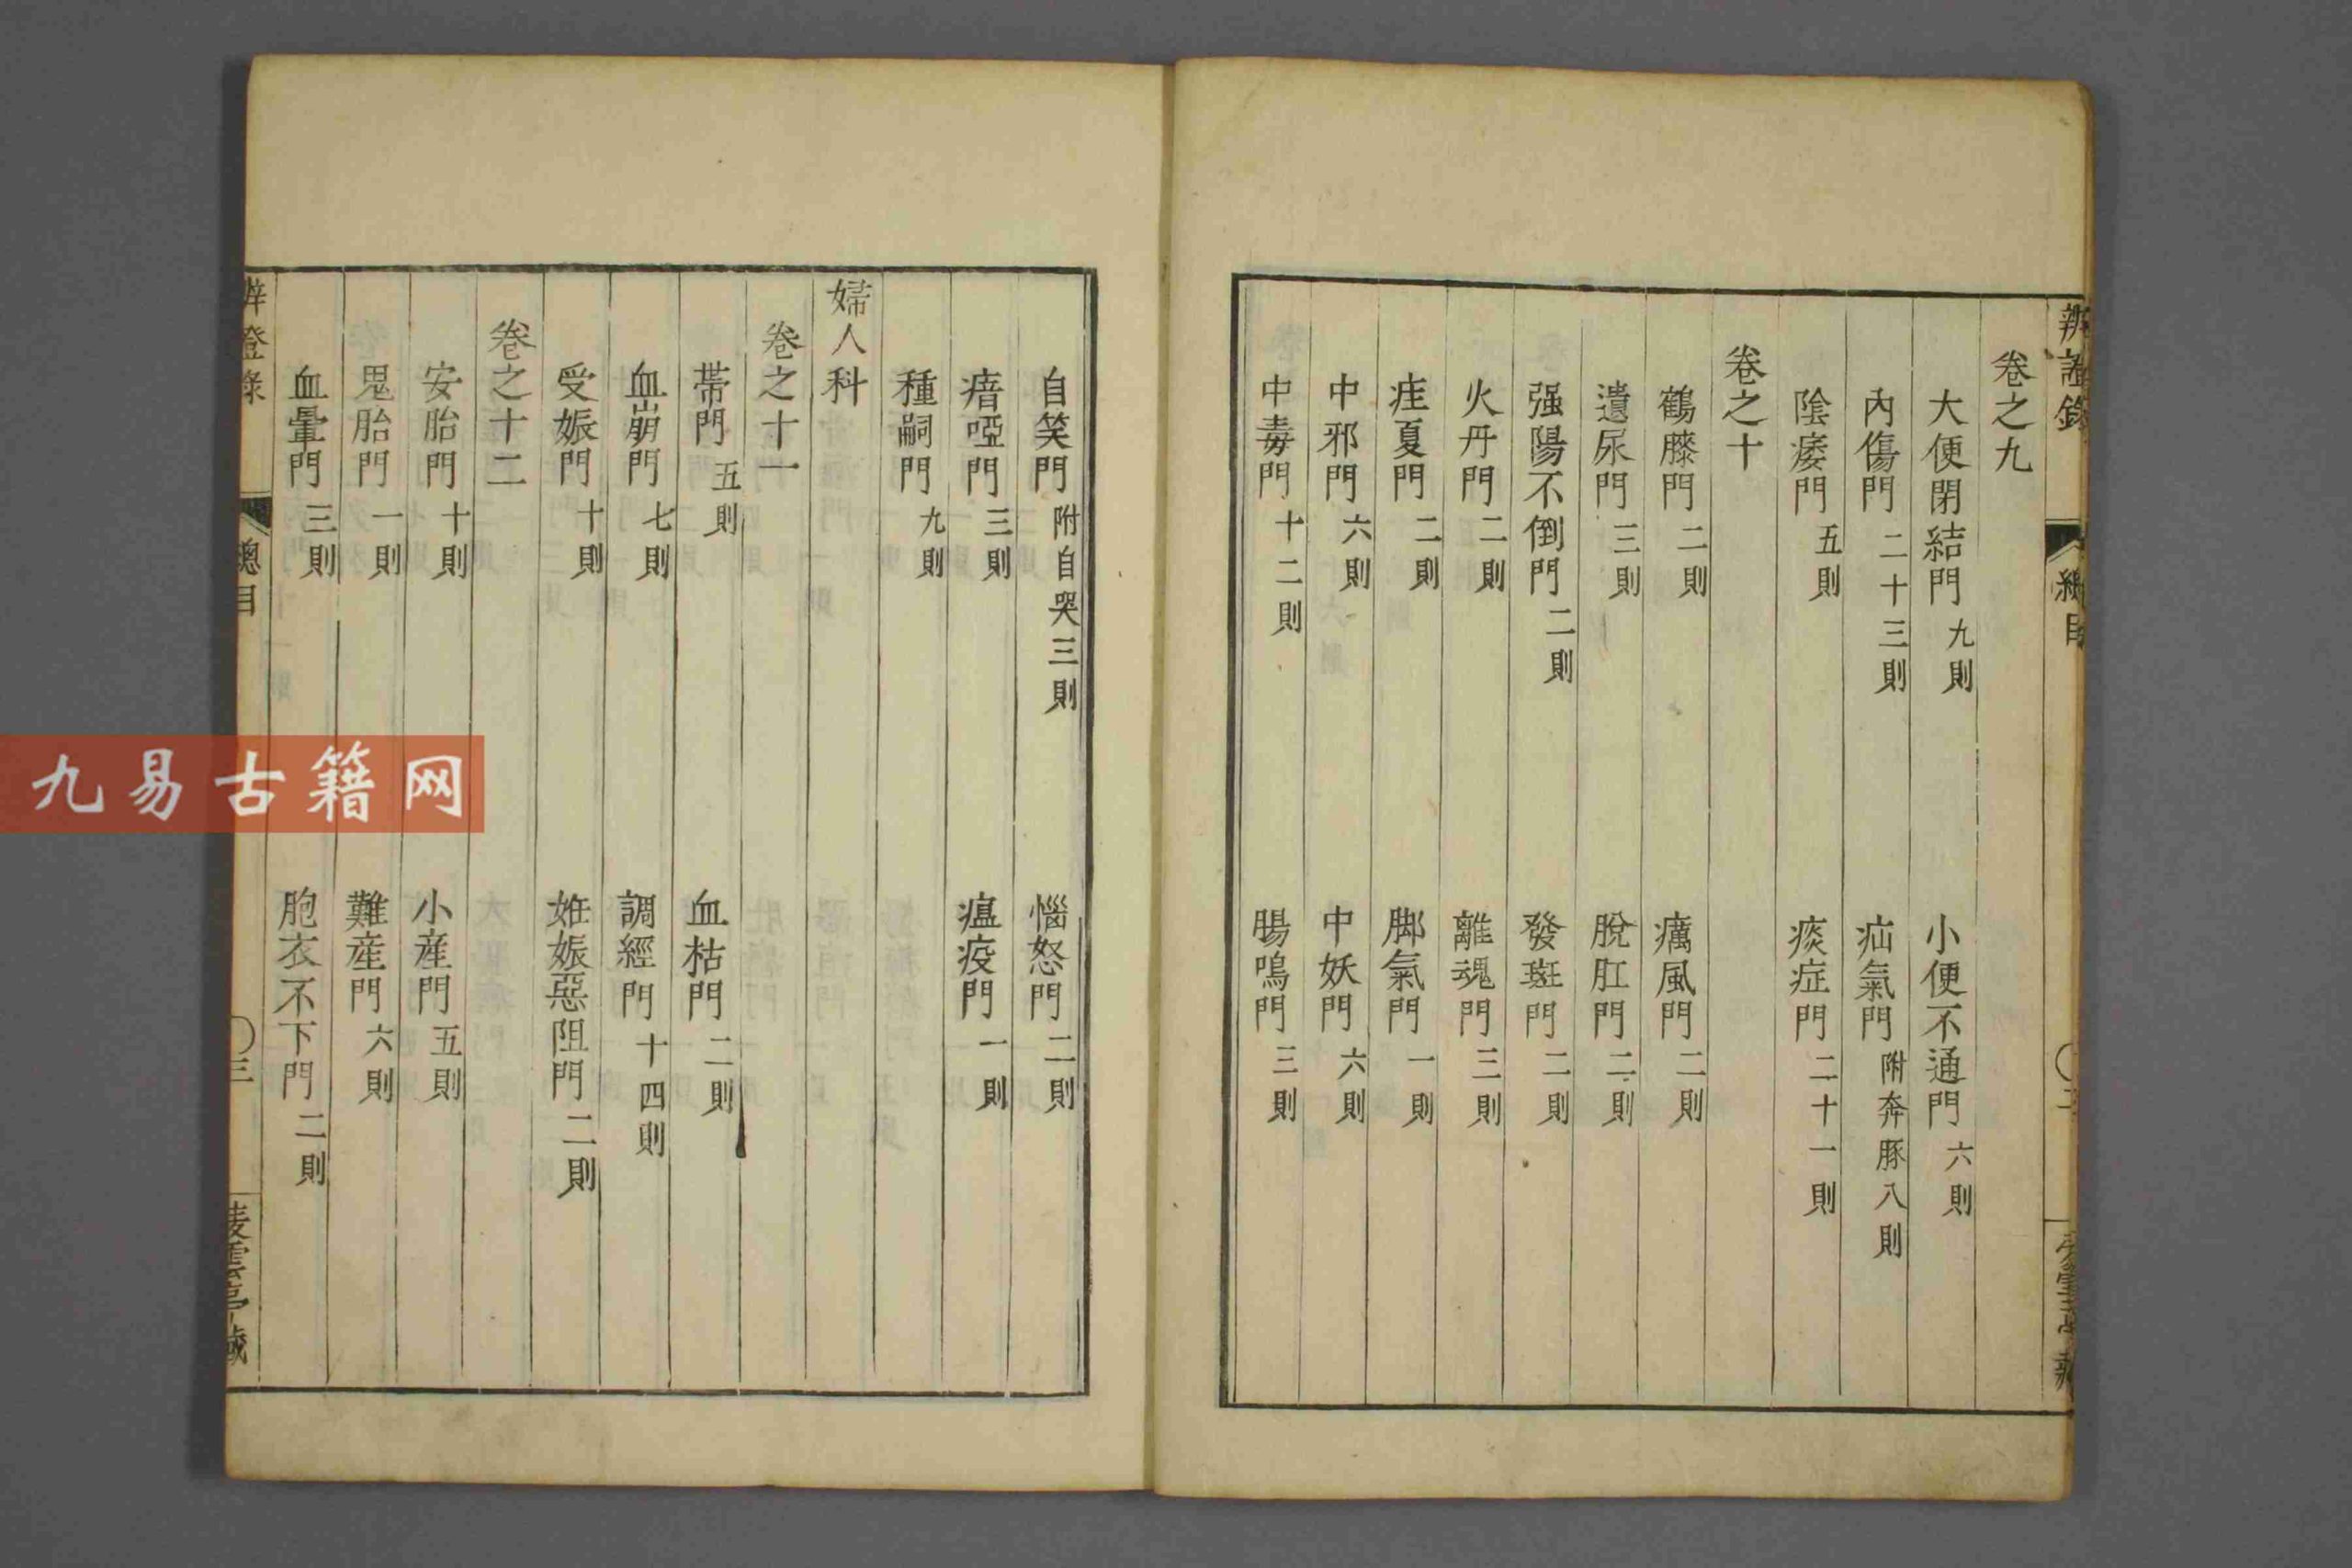 辨證錄 總目
卷之九
大便閉結門 九則 小便不通門 六則
內傷門 二十三則 疝氣門 附奔豚八則
陰痿門 五則 痰症門 二十一則
卷之十
鶴膝門 二則 癘風門 二則
遺尿門 三則 脫肛門 二則
强陽不倒門 二則 發斑門 二則
火丹門 二則 離魂門 三則
疰夏門 二則 脚氣門 一則
中邪門 六則 中妖門 六則
中毒門 十二則 腸鳴門 三則
自笑門 附自哭三則 惱怒門 二則
瘖啞門 三則 瘟疫門 一則
種嗣門 九則
婦人科
卷之十一
帶門 五則 血枯門 二則
血崩門 七則 調經門 十四則
受娠門 十則 姙娠惡阻門 二則
卷之十二
安胎門 十則 小産門 五則
鬼胎門 一則 難産門 六則
血暈門 三則 胞衣不下門 二則
總目 三
九易古籍网